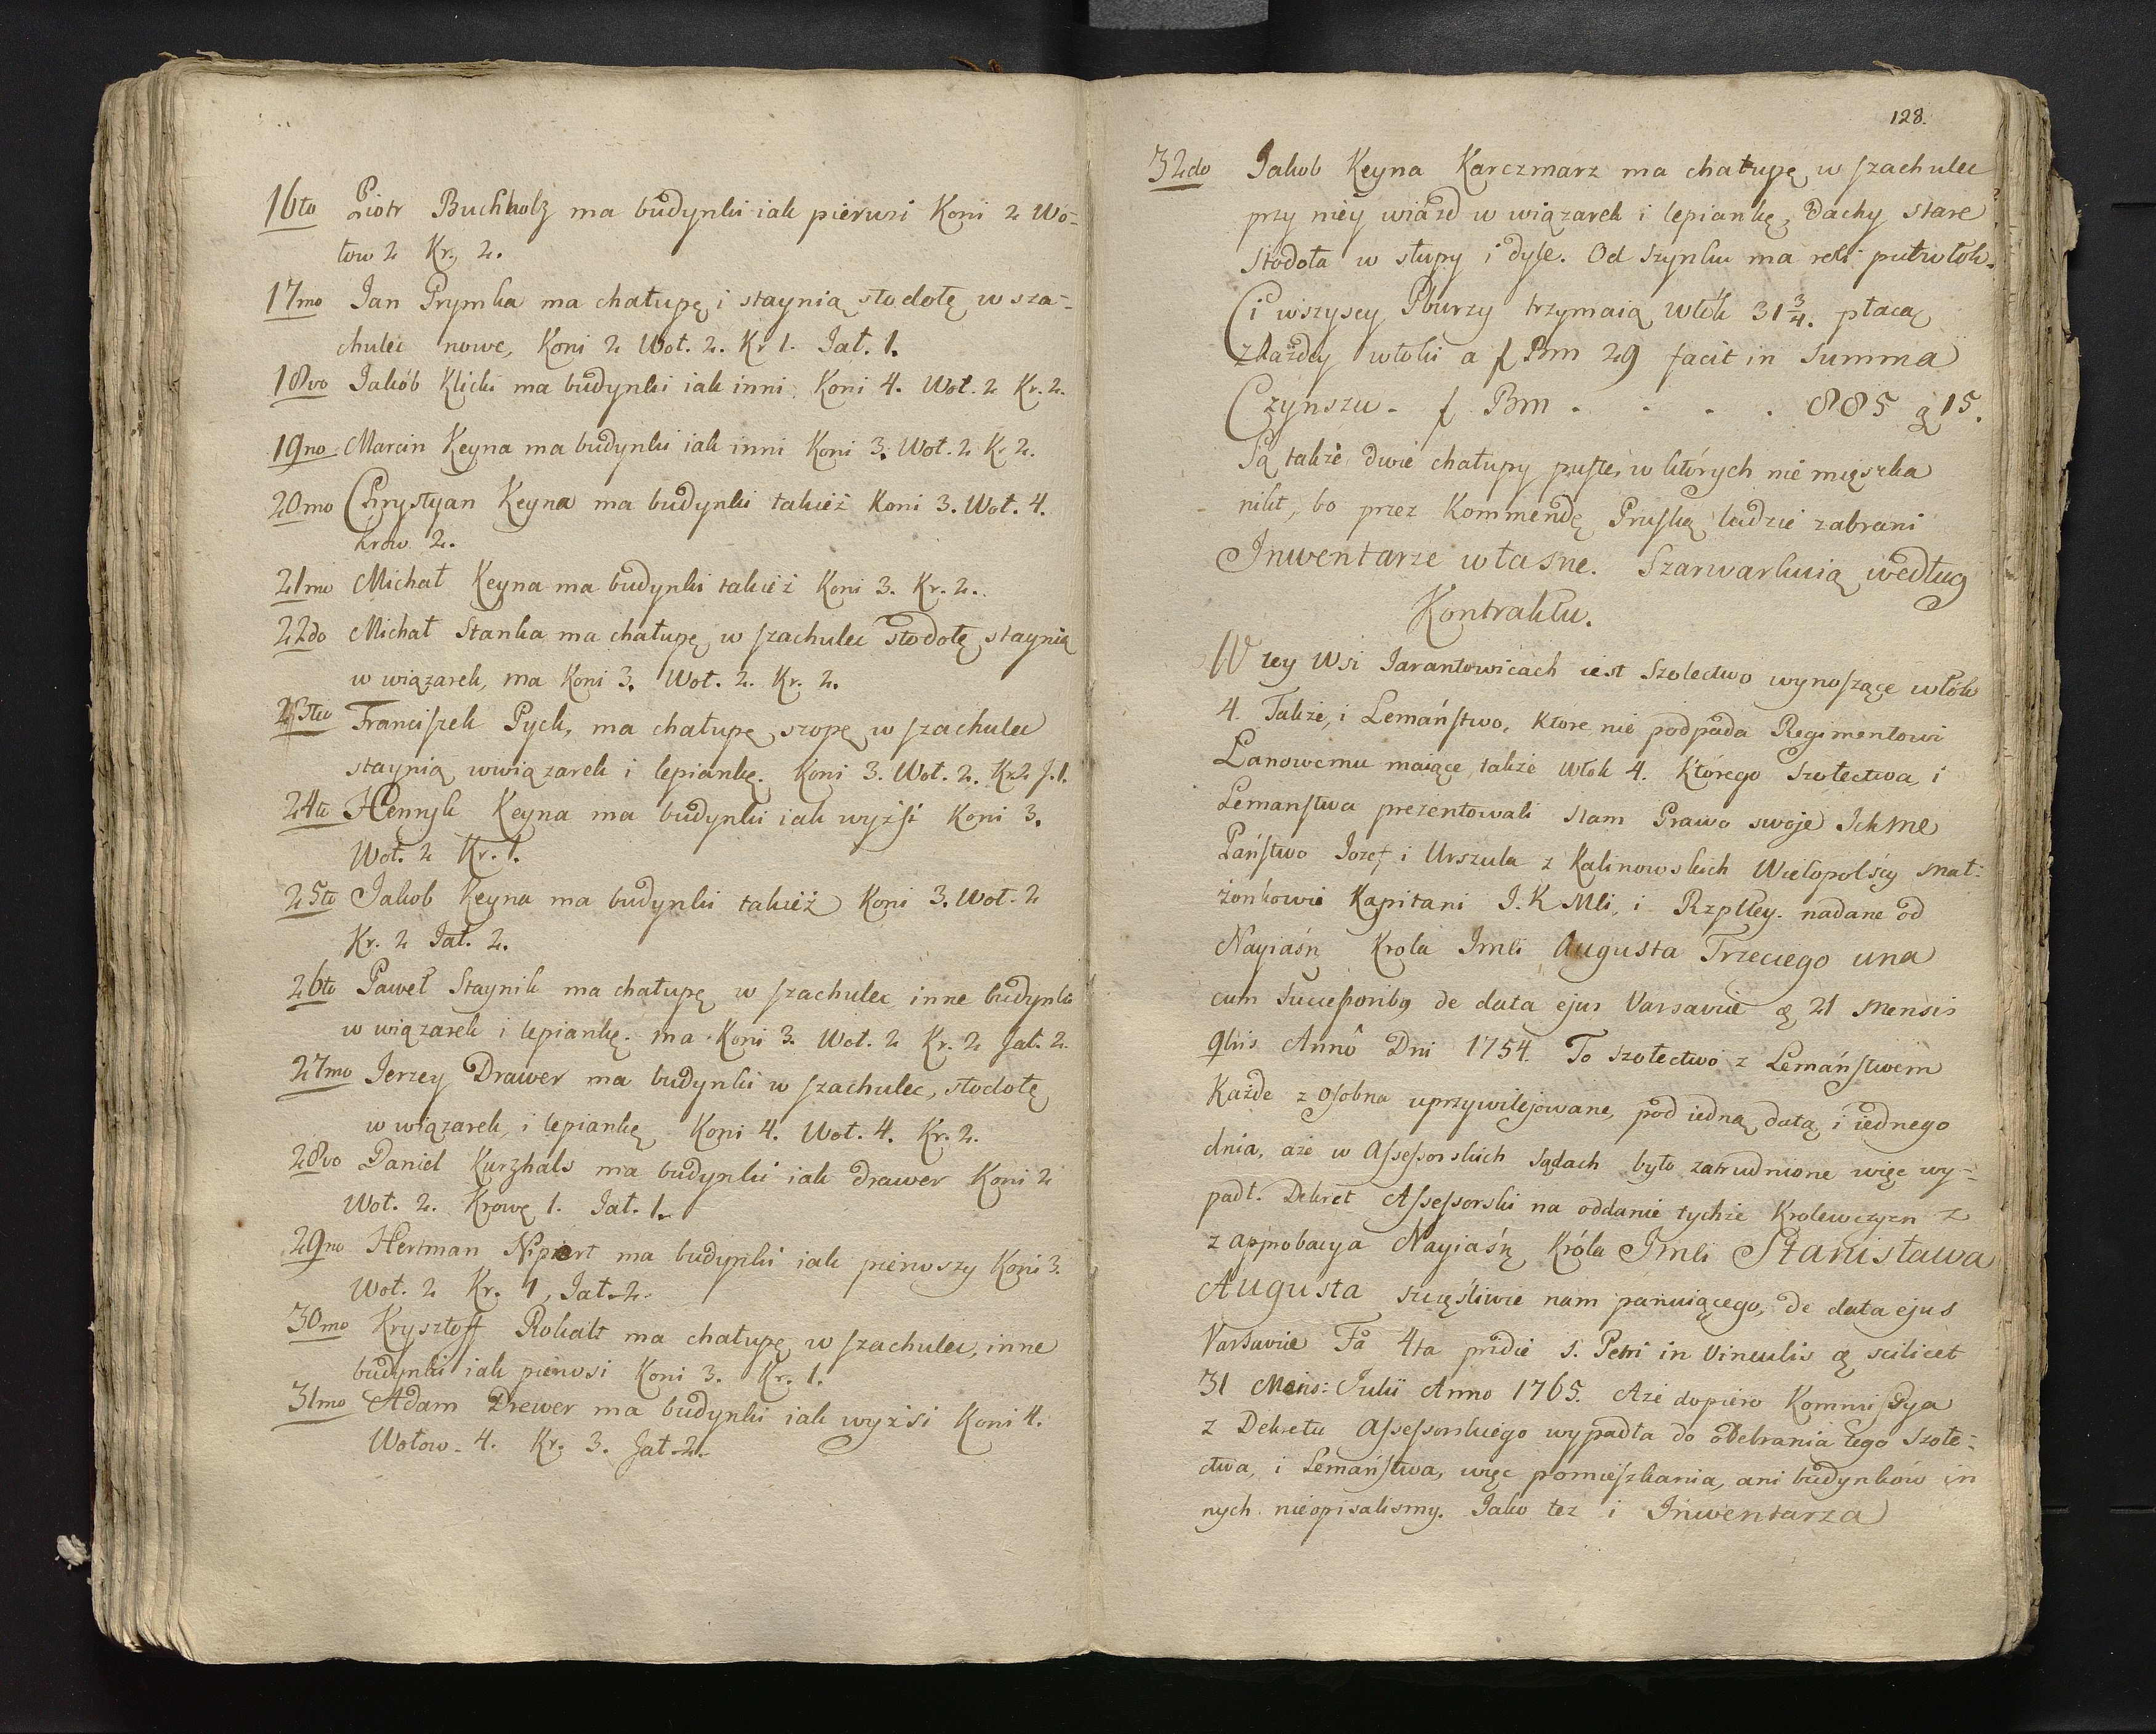 16to Piotr Buchholz ma budynki iak pierwsi Koni 2 Wo-
łow 2 Kr. 2.
17mo Jan Prymka ma chałupę i staynią stodołę w sza-
chulec nowe, Koni 2 Woł. 2. Kr 1. Jał. 1.
18vo Jakób Klicki ma budynki iak inni Koni 4. Woł. 2 Kr. 2.
19no Marcin Keyna ma budynki iak inni Koni 3. Woł. 2 Kr 2.
20mo Chrystyan Keyna ma budynki takież Koni 3. Woł. 4.
krow 2.
21mo Michał Keyna ma budynki takież Koni 3. Kr. 2.
22do Michał Stanka ma chałupę w szachulec stodołę staynią
w wiązarek, ma Koni 3. Woł. 2. Kr. 2.
23tio Franciszek Pych, ma chałupę szopę w szachulec
staynią wwiązarek i lepiankę. Koni 3. Woł. 2. Kr2 J. 1.
24to Henryk Keyna ma budynki iak wyżsi Koni 3.
Woł. 2 Kr. 1.
25to Jakob Keyna ma budynki takież Koni 3. Woł. 2
Kr. 2 Jał. 2.
26to Paweł Staynik ma chałupę w szachulec inne budynki
w wiązarek i lepiankę. ma Koni 3. Woł. 2 Kr. 2 Jał. 2.
27mo Jerzey Drawer ma budynki w szachulec, stodołę
w wiązarek, i lepiankę Koni 4. Woł. 4. Kr. 2.
28vo Daniel Kurzhals ma budynki iak Drawer Koni 2
Woł. 2. Krowę 1. Jał. 1.
29no Hertman Nipert ma budynki iak pierwszy Koni 3.
Woł. 2 Kr. 1, Jał. 2.
30mo Krysztoff Rohalt ma chałupę w szachulec, inne
budynki iak pierwsi Koni 3. Kr. 1.
31mo Adam Drewer ma budynki iak wyżsi Koni 4.
Wołow. 4. Kr. 3. Jał. 2.
128.
32do Jakob Keyna Karczmarz ma chałupę w szachulec
przy niey wiazd w wiązarek i lepiankę, dachy stare
stodoła w słupy i dyle. Od szynku ma roli pułwłok.
Ci wszyscy Pburzy trzymaią włók 31 3/4. płacą
z każdey włoki a f Bm 29 facit in Summa
Czynszu. f Bm . . . . 885 g 15.
Są także dwie chałupy puste, w których nie mięszka
nikt, bo przez Kommendę Pruską ludzie zabrani
Inwentarze własne. Szarwarkuią według
Kontraktu.
W tey Wsi Jarantowicach iest Szolectwo wynoszące włók
4. Także, i Lemaństwo, ktore nie podpada Regimentowi
Łanowemu maiące, także włok 4. Którego szołectwa, i
Lemanstwa prezentowali nam Prawo swoje Jchme
Państwo Jozef i Urszula z Kalinowskich Wielopolscy mał:
żonkowie Kapitani J. K Mli, i Rzplley. nadane od
Nayiaśn Krola Jmli Augusta Trzeciego una
cum Successoribq de data ejus Varsavie d 21 Mensis
9bris Annô Dni 1754. To szołectwo z Lemaństwem
każde z osobna uprzywilejowane, pod iedną datą i iednego
dnia, aże w Assessorskich sądach było zatrudnione więc wy-
padł. Dekret Assessorski na oddanie tychże Krolewczyzn z
z approbacya Nayiaśn Króla Jmli Stanisława
Augusta szczęśliwie nam panuiącego, de data ejus
Varsavie Fa 4ta pridie S. Petri in Vinculis d scilicet
31 Mens: Julii Anno 1765. Aże dopiero Kommissya
z Dekretu Assessorskiego wypadła do odebrania tego Szołe-
ctwa, i Lemaństwa, więc pomieszkania, ani budynków in
nych nieopisalismy. Jako tez i Inwentarza